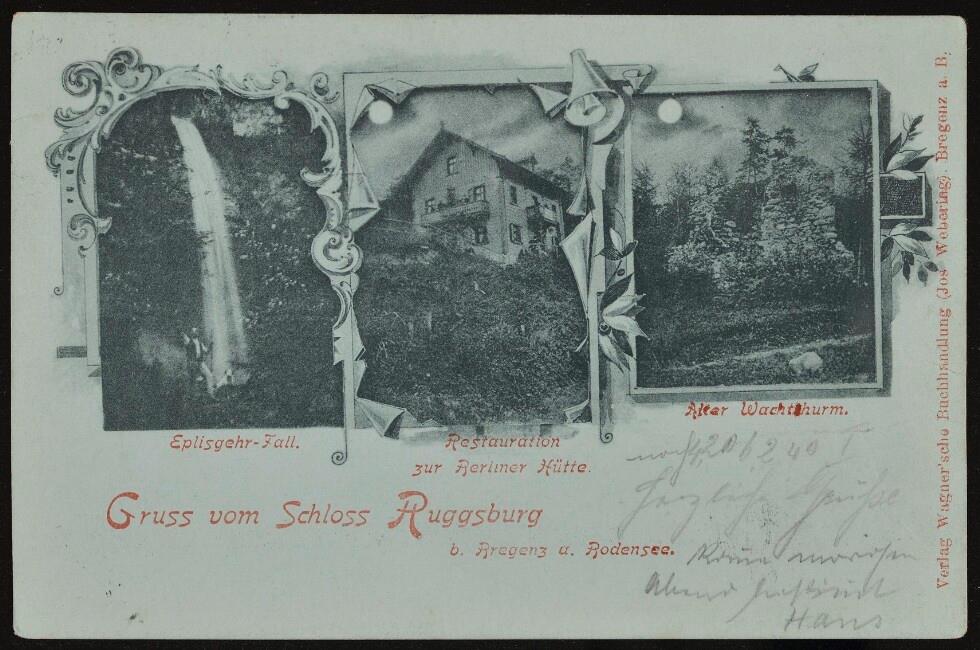 Eplisgehr-Fall.
Restauration
zur Berliner Hütte.
Alter Wachtthurm.
Gruss vom Schloss Ruggsburg
b. Bregenz a. Bodensee.
Herzliche Grüße
Abend
Hans
Verlag Wagner'sche Buchhandlung (Jos Webering) Bregenz a. B.